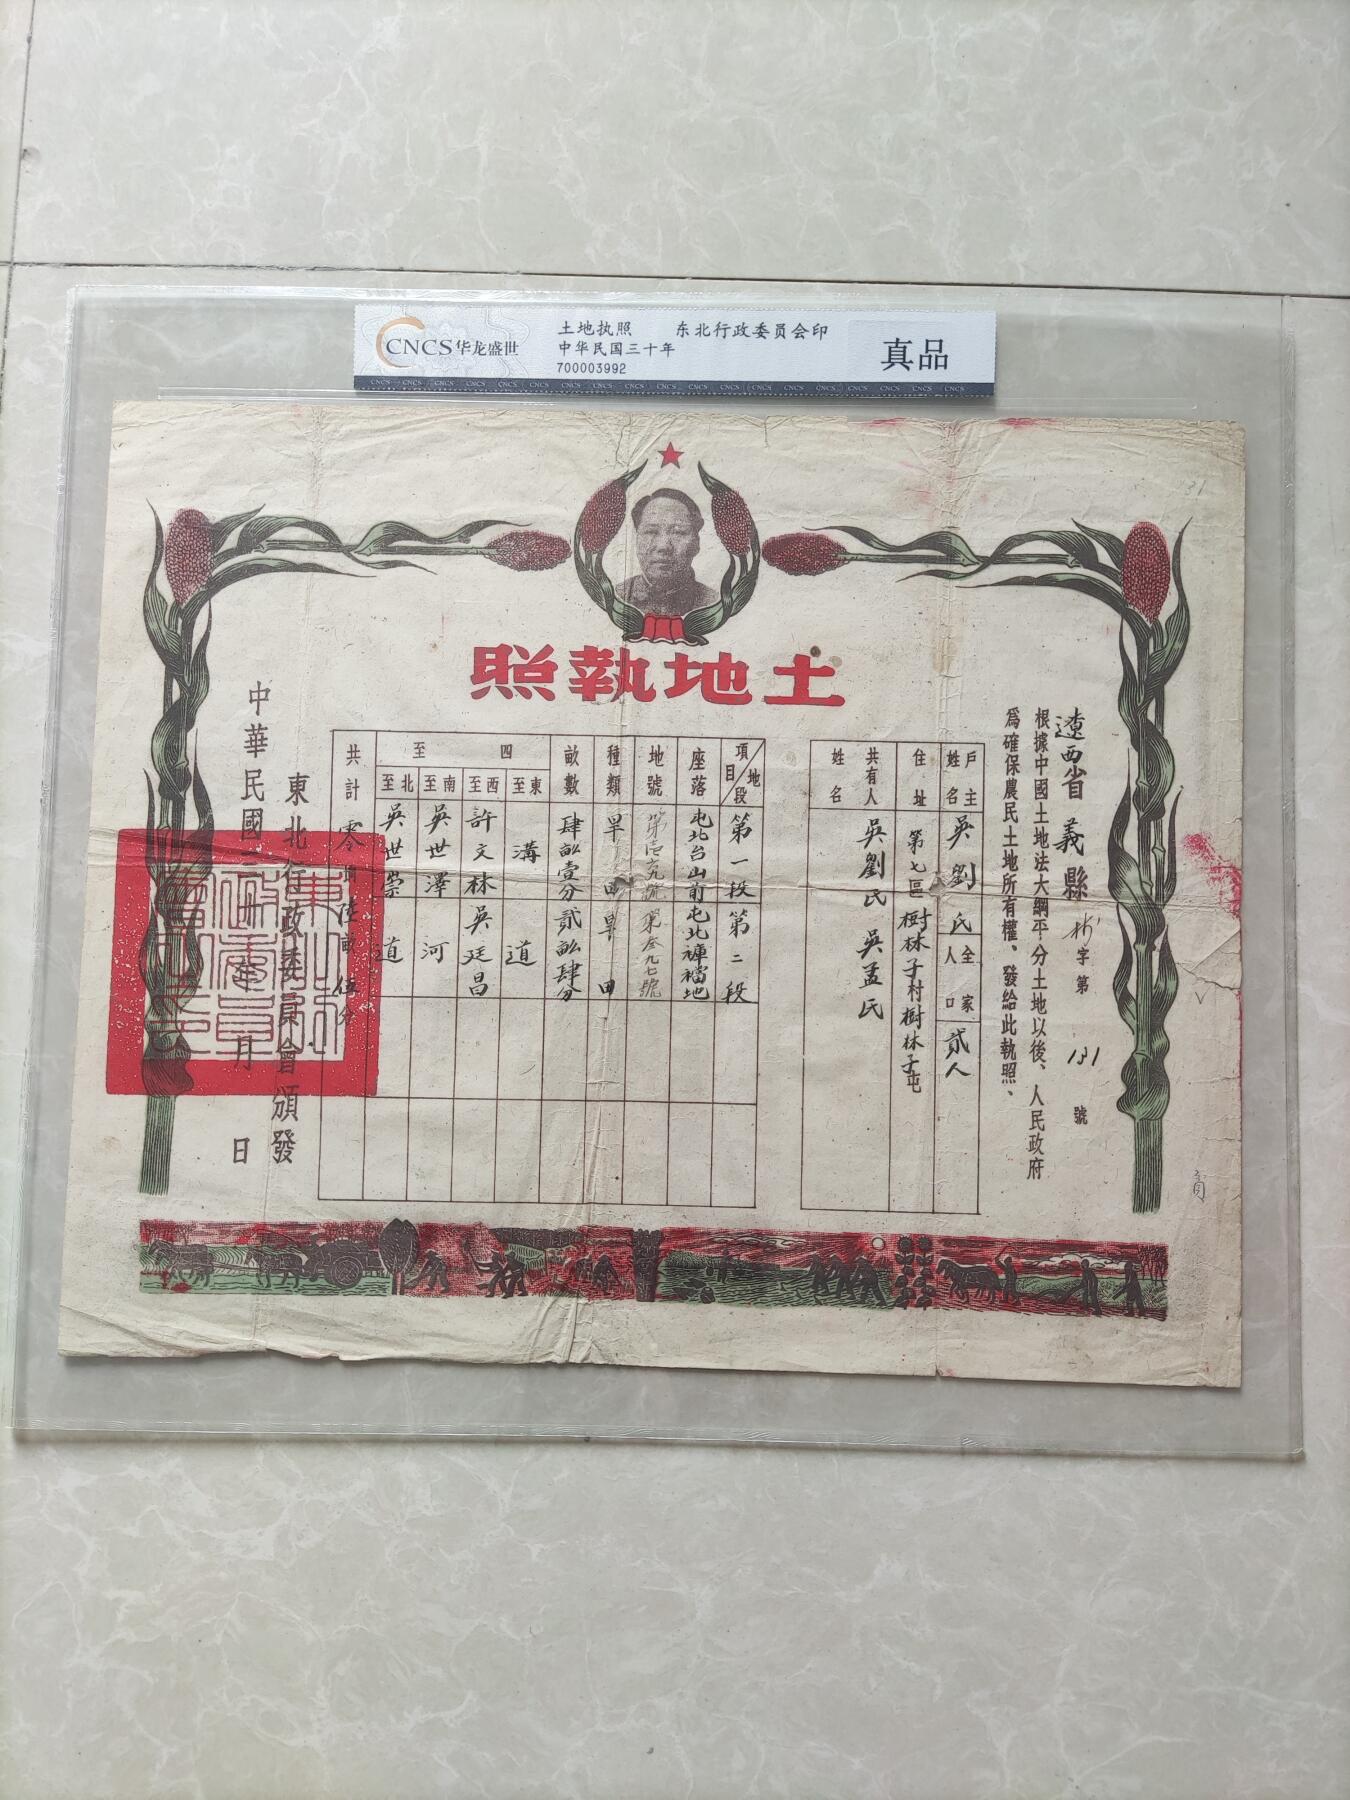 CNCS华龙盛世
土地执照 东北行政委员会印
中华民国三十年
700003992
真品
CNCS CNCS CNCS CNCS CNCS CNCS CNCS CNCS CNCS CNCS CNCS CNCS CNCS CNCS CNCS CNCS CNCS CNCS CNCS
31
土地執照
遼西省義縣 字第131號
根據中國土地法大綱平分土地以後、人民政府
爲確保農民土地所有權、發給此執照、
戶主姓名 吳劉氏 全家人口 貳人
住址 第七區樹林子村樹林子屯
共有人姓名 吳劉氏 吳孟氏
項目 地段 第一段 第二段
座落 屯北台山前 屯北褲襠地
地號 第叁九七號
種類 旱田 旱田
畝數 肆畝壹分 貳畝肆分
四至
東至 溝 道
西至 許文林 吳廷昌
南至 吳世澤 河
北至 吳世崇 道
共計 零垧陸畝伍分
東北行政委員會頒發
中華民國三 年 月 日